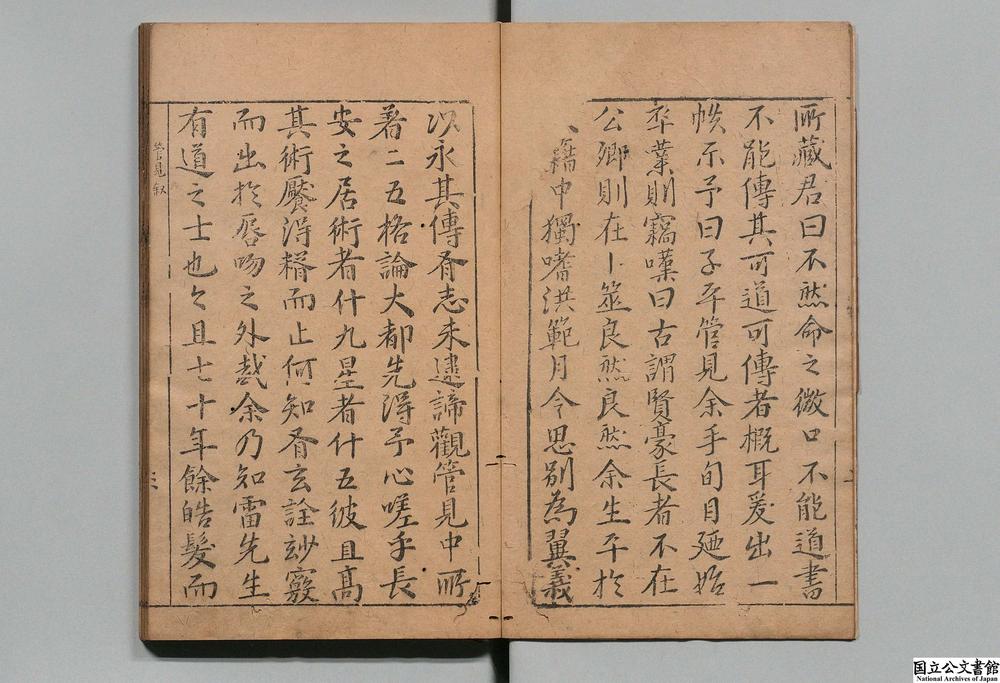 所藏君曰不然命之微口不能道書
不能傳其可道可傳者概耳爰出一
帙示予曰子平管見余手旬目廼始
卒業則竊嘆曰古謂賢豪長者不在
公卿則在卜筮良然良然余生平於
籍中獨嗜洪範月令思別為翼義
以永其傳脊志未逮諦觀管見中所
著二五格論大都先得予心嗟乎長
安之居術者什九星者什五彼且高
其術饜得糈而止何知脊玄詮玅竅
而出於唇吻之外哉余乃知雷先生
有道之士也々且七十年餘皓髮而
管見叙
国立公文書館
National Archives of Japan